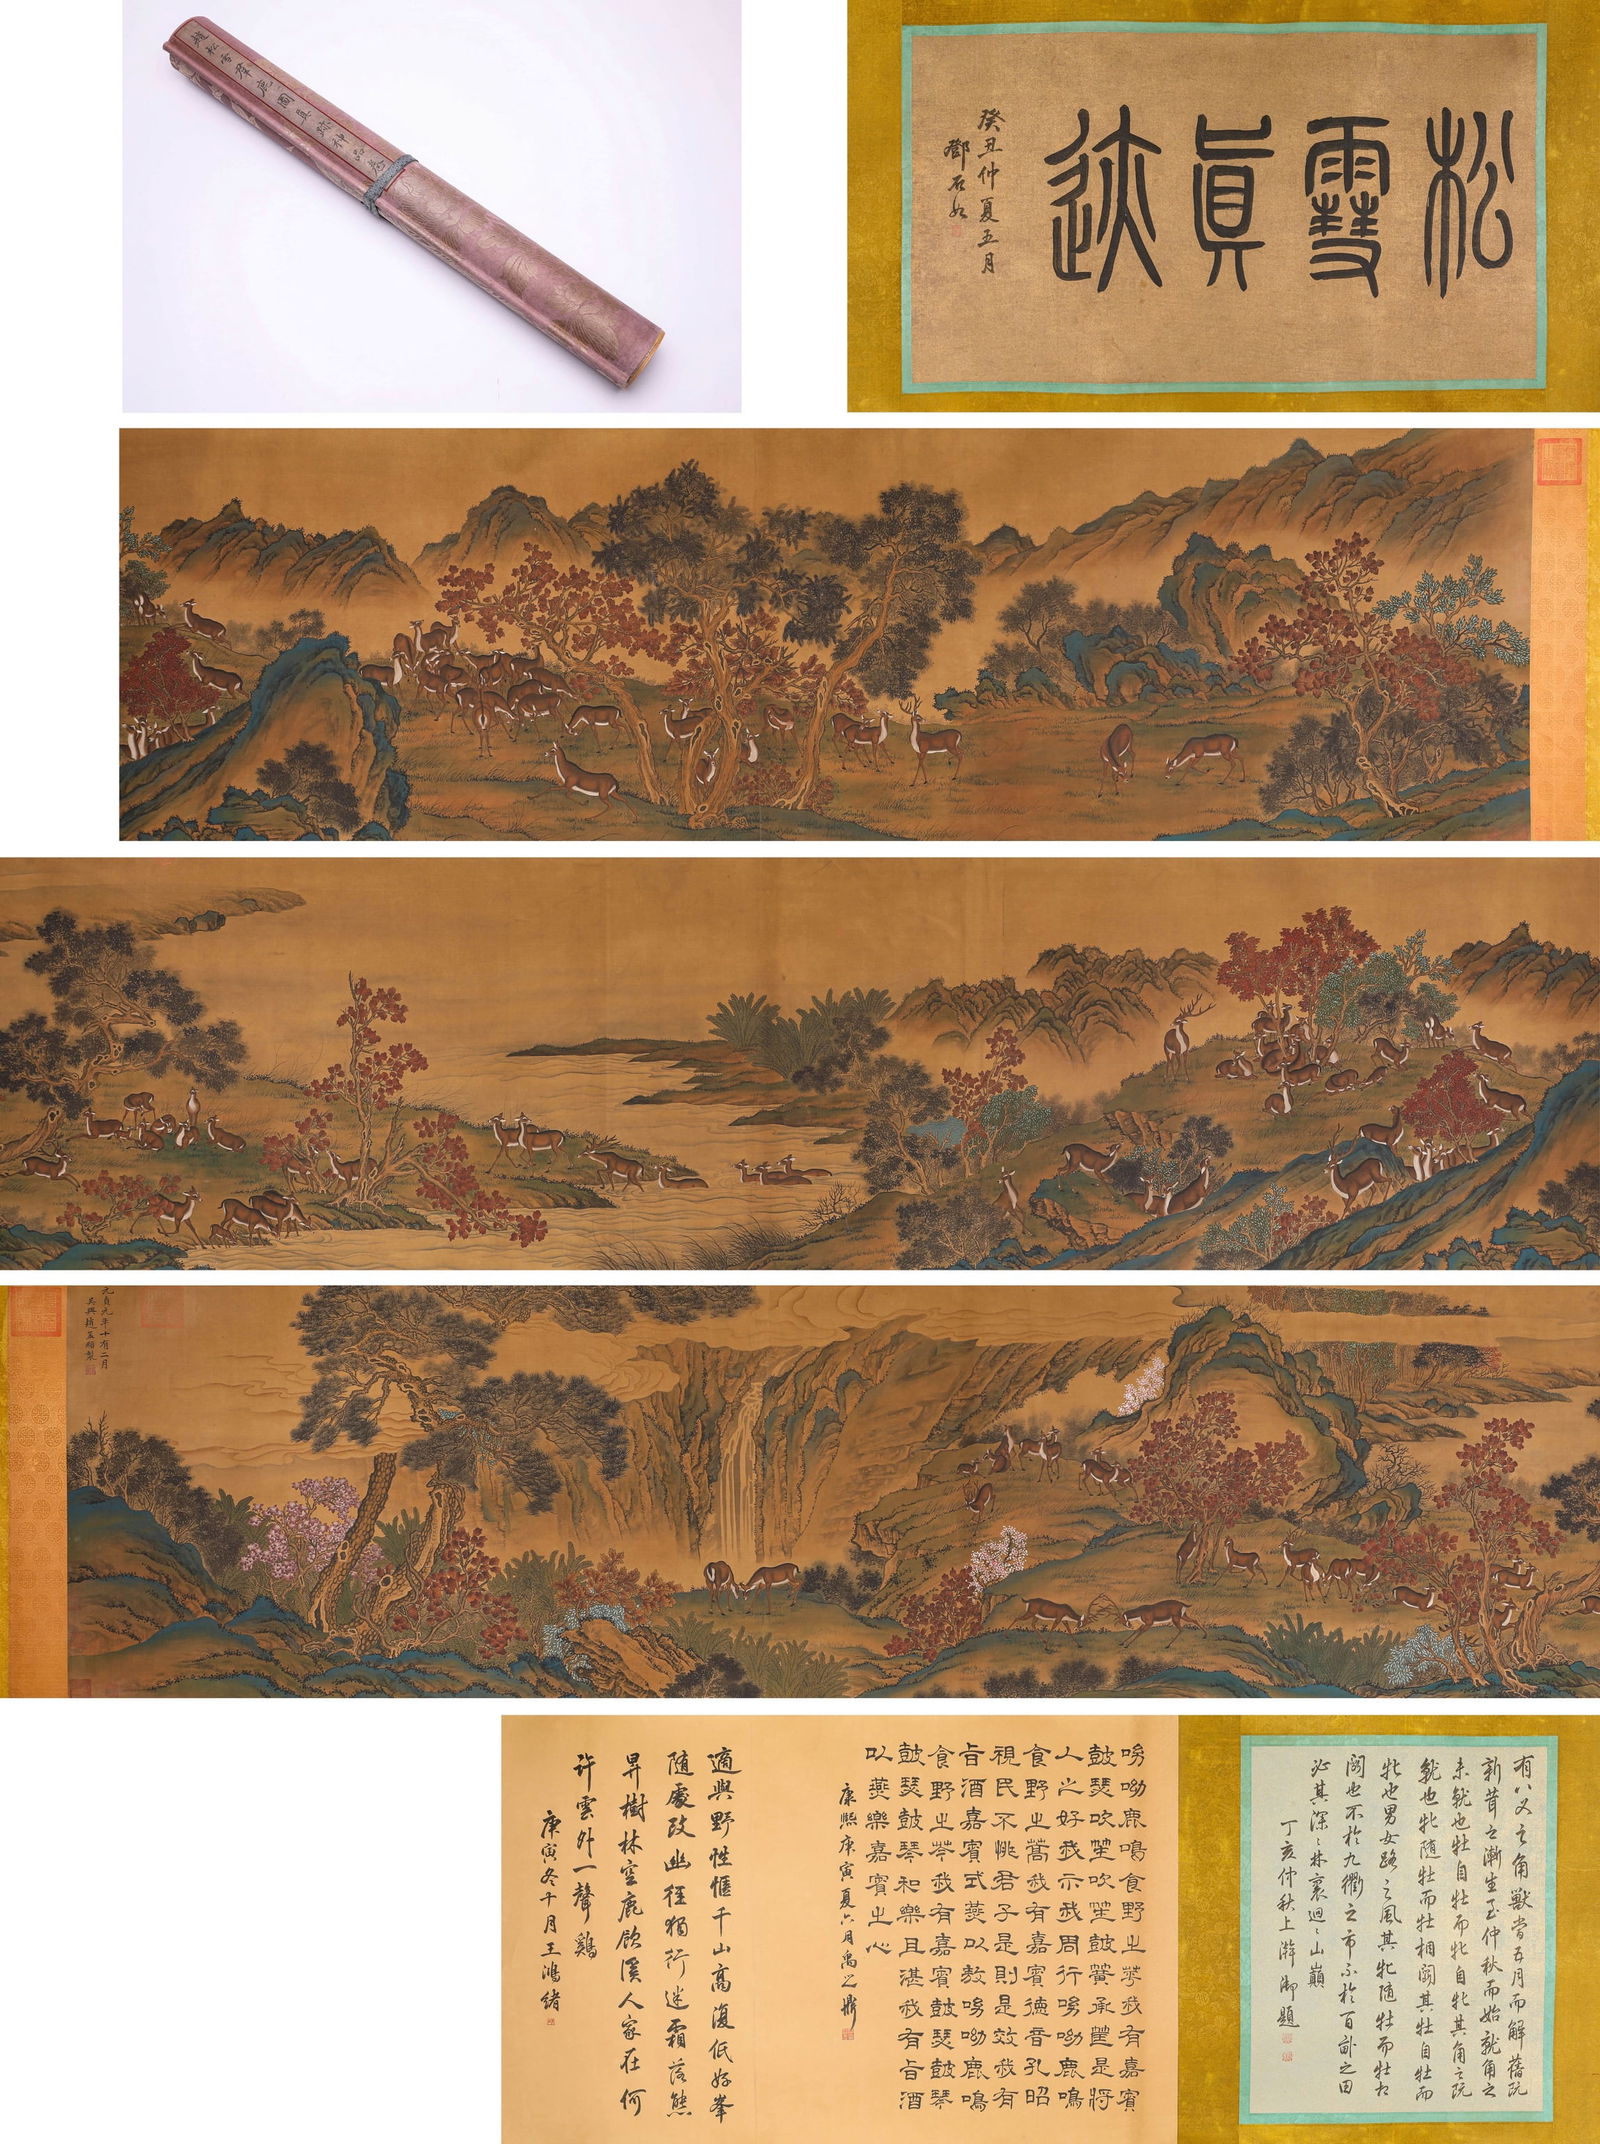 趙松雪群鹿圖真跡神品卷
松雪眞迹
癸丑仲夏五月
鄧石如
元貞元年十有二月
吳興趙孟頫製
有八叉之角獸當五月而解舊阮
新茸之漸生至仲秋而始就角之
未就也牡自牡而牝自牝其角之阮
就也牝隨牡而牡相鬬其牡自牡而
牝也男女路之風其牝隨牡而牡相
鬬也不於九衢之市不於百畝之田
必其深深林裏迴迴山巔
丁亥仲秋上澣御題
呦呦鹿鳴食野之苹我有嘉賓
鼓瑟吹笙吹笙鼓簧承筐是將
人之好我示我周行呦呦鹿鳴
食野之蒿我有嘉賓德音孔昭
視民不恌君子是則是效我有
旨酒嘉賓式燕以敖呦呦鹿鳴
食野之芩我有嘉賓鼓瑟鼓琴
鼓瑟鼓琴和樂且湛我有旨酒
以燕樂嘉賓之心
康熙庚寅夏六月禹之鼎
適與野性愜千山高復低好峯
隨處改幽徑獨行迷霜落熊
昇樹林空鹿飲溪人家在何
許雲外一聲鷄
庚寅冬十月王鴻緒